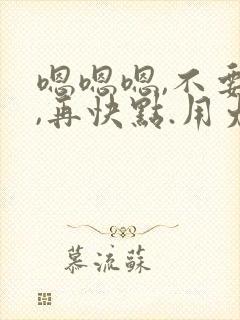 嗯嗯嗯,不要
,再快點.用大
慕流蘇